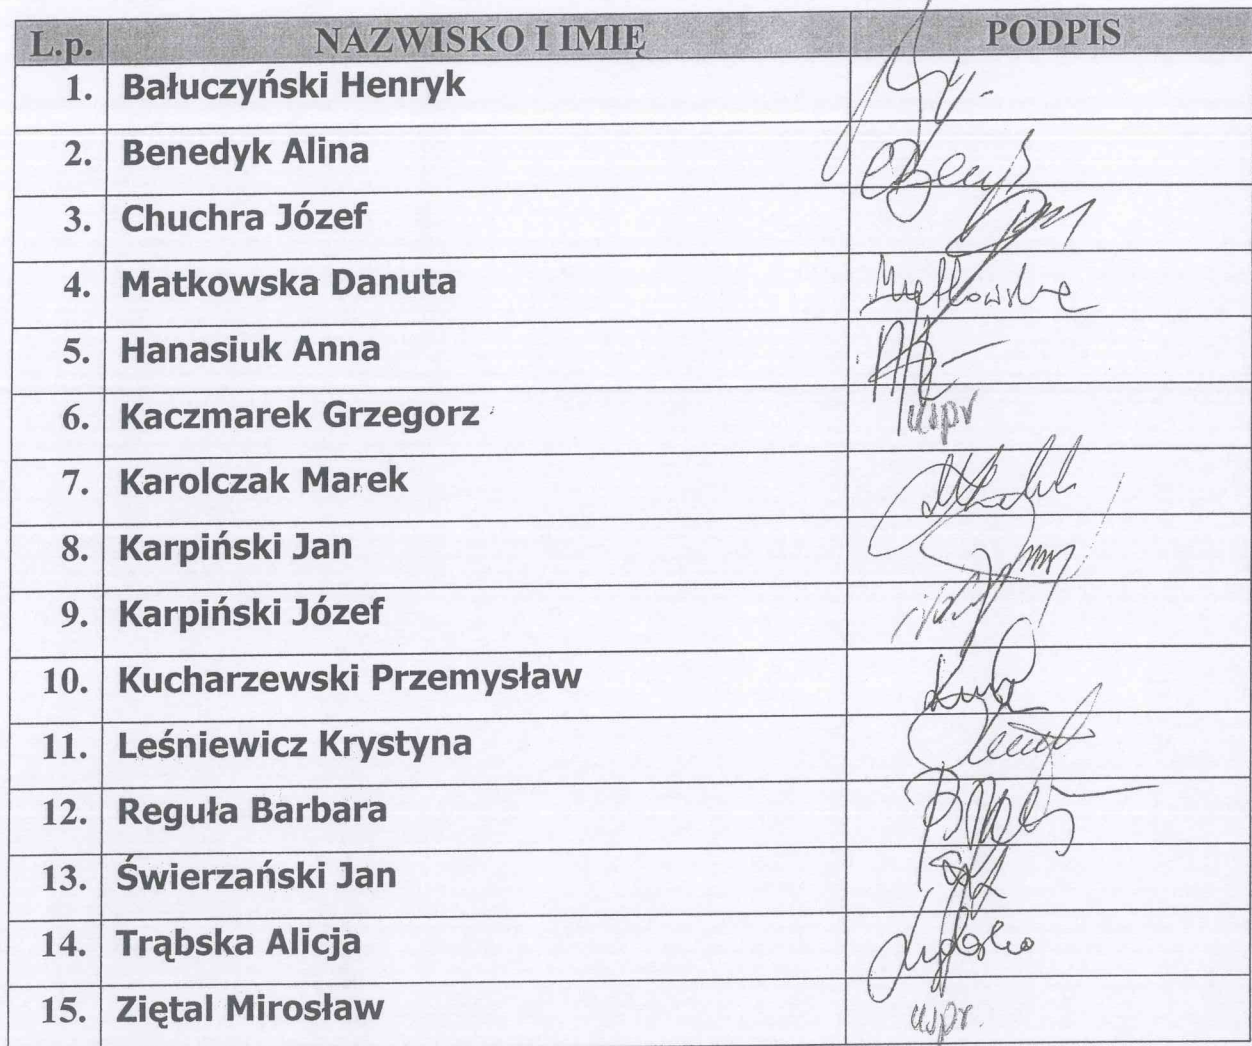 L.p. NAZWISKO I IMIĘ PODPIS
1. Bałuczyński Henryk
2. Benedyk Alina
3. Chuchra Józef
4. Matkowska Danuta
5. Hanasiuk Anna
6. Kaczmarek Grzegorz uspr
7. Karolczak Marek
8. Karpiński Jan
9. Karpiński Józef
10. Kucharzewski Przemysław
11. Leśniewicz Krystyna
12. Reguła Barbara
13. Świerzański Jan
14. Trąbska Alicja
15. Ziętal Mirosław uspr.